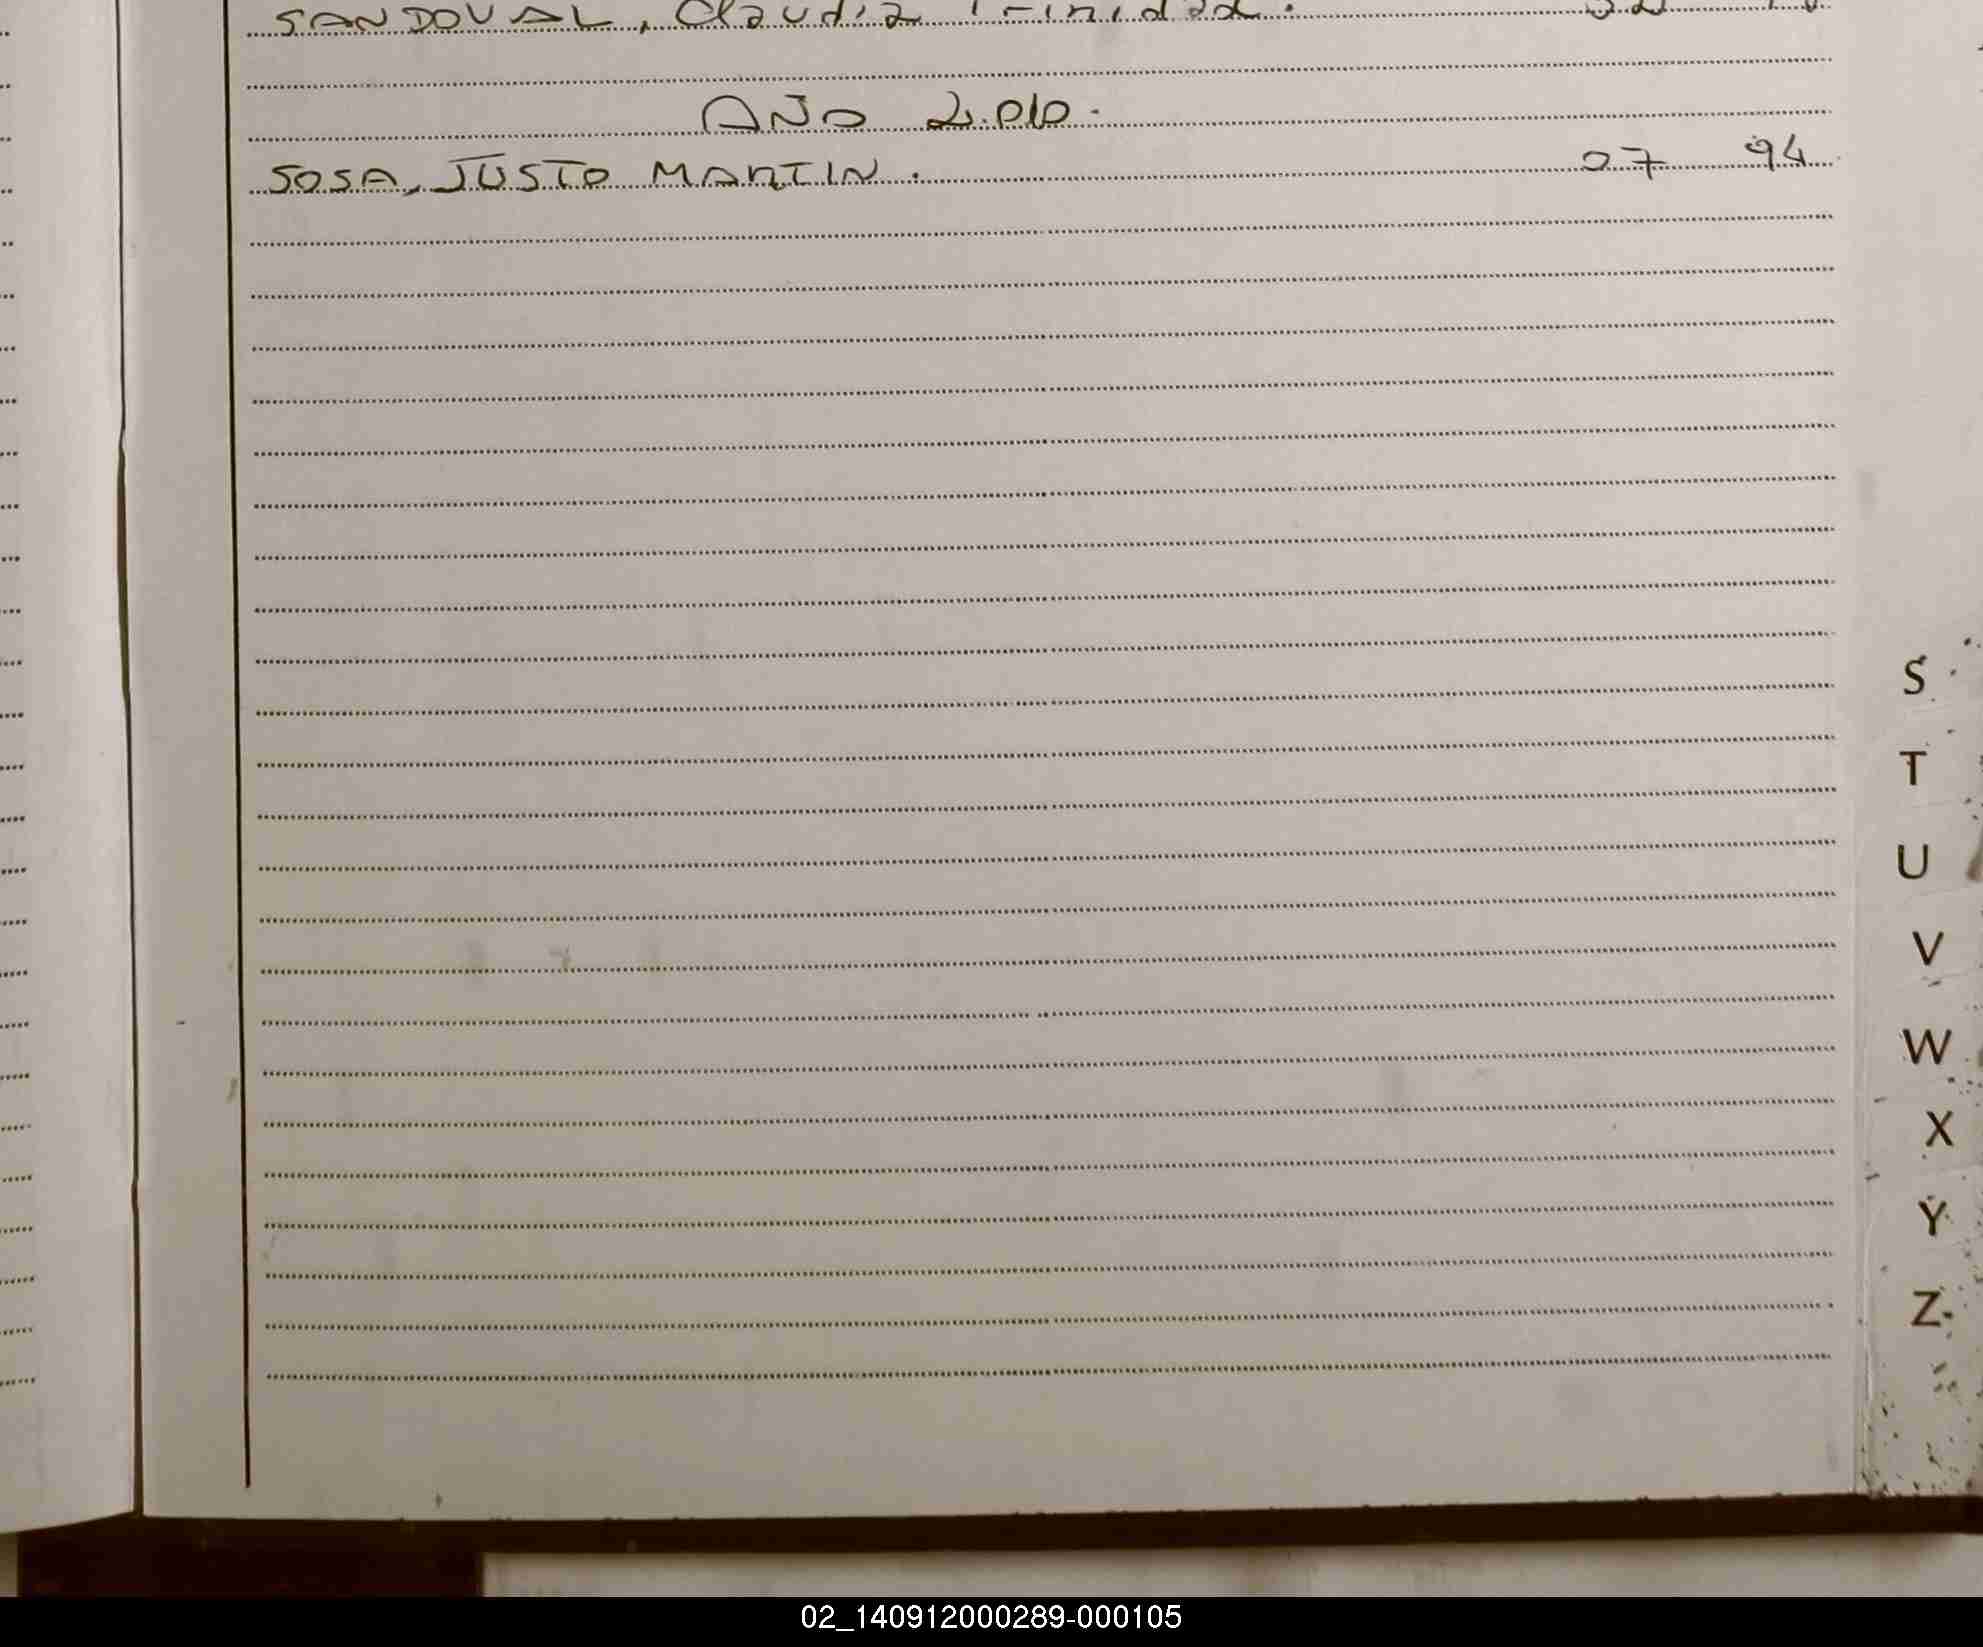 SANDOVAL, Claudia Trinidad.
AÑO 2.010.
SOSA, JUSTO MARTIN. 07 94
S
T
U
V
W
X
Y
Z
02_140912000289-000105